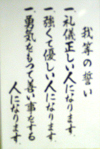 我等の誓い
一、礼儀正しい人になります。
一、強くて優しい人になります。
一、勇気をもって善い事をする
人になります。